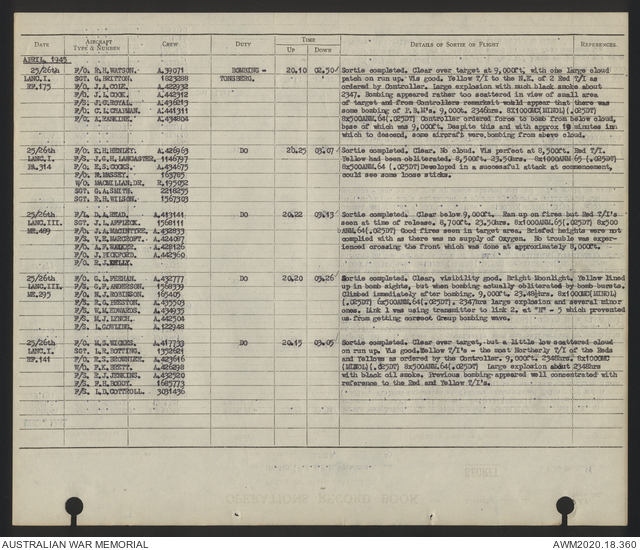 DATE AIRCRAFT TYPE & NUMBER CREW DUTY TIME UP DOWN DETAILS OF SORTIE OR FLIGHT REFERENCES.
APRIL 1945
25/26th P/O. R.H.WATSON. A.39071 BOMBING - 20.10 02.50 Sortie completed. Clear over target at 9,000ft, with one large cloud
LANC.I. SGT. G.BRITTON. 1823288 TONSBERG. patch on run up. Vis good. Yellow T/I to the N.E. of 2 Red T/I as
RF.175 P/O. J.A.COLE. A.422932 ordered by Controller. Large explosion with much black smoke about
P/O. J.L.COCK. A.442312 2347. Bombing appeared rather too scattered in view of small area
P/S. J.C.ROYAL. A.436213 of target and from Controllers remarks it would appear that there was
P/O. C.L.CHAPMAN. A.441311 some bombing of P.F.M's. 9,000ft. 2346hrs. 8X1000MC(MINOL)(.025DT)
P/O. A.RANKINE. A.434804 8X500ANM.64(.025DT) Controller ordered force to bomb from below cloud,
base of which was 9,000ft. Despite this and with approx 10 minutes inn
which to descend, some aircraft were bombing from above cloud.
25/26th F/O. K.H.HENLEY. A.426963 DO 20.25 03.07 Sortie completed. Clear. No cloud. Vis perfect at 8,500ft. Red T/I.
LANC.I. SGT. J.G.H.LANCASTER. 1146797 Yellow had been obliterated. 8,500ft. 23.50hrs. 8x1000ANM 65 (.025DT)
PA.314 F/O. E.S.COCKS. A.434675 8x500ANM.64 (.025DT) Developed in a successful attack at commencement,
F/O. N.MASSEY. 163785 could see some loose sticks.
W/O. MACMILLAN.DE. R.195052
SGT. G.A.SMITH. 2218255
SGT. R.H.WILSON. 1567303
25/26th F/L. D.A.READ. A.413141 DO 20.22 03.13 Sortie completed. Clear below 9,000ft. Ran up on fires but Red T/I's
LANC.III. SGT. J.L.AFFLECK. 1568111 seen at time of release. 8,700ft. 23.50hrs. 8x1000ANM.65(.025DT) 8x500
ME.489 F/O. J.A.MACINTYRE. A.432833 ANM.64(.025DT) Good fires seen in target area. Briefed heights were not
F/S. V.R.MARCROFT. A.424087 complied with as there was no supply of Oxygen. No trouble was exper-
P/O. A.F. A.428126 iencened crossing the front which was done at approximately 8,000ft.
F/O. J.PICKFORD. A.442360
P/O. R.J.KELLY.
25/26th F/O. G.L.FEEHAN. A.432777 DO 20.20 03.26 Sortie completed. Clear, visibility good. Bright Moonlight. Yellow lined
LANC.III. F/S. G.F.ANDERSON. 1568339 up in bomb sights, but when bombing actually obliterated by bomb-bursts.
ME.295 F/O. H.J.ROBINSON. 165405 Climbed immediately after bombing. 9,000ft. 23.48½hrs. 8x1000MC(MINOL)
F/S. R.G.PRESTON. A.437503 (.025DT) 6x500ANM.64(.025DT) 2347hrs large explosion and several minor
F/S. W.M.EDWARDS. A.434935 ones. Link 1 was using transmitter to link 2. at "H" - 5 which prevented
F/S. M.J.LYNCH. A.442504 us from getting correct Group bombing wave.
F/S. L.COWLING. A.422948
25/26th F/O. M.S.WICKES. A.417733 DO 20.15 03.05 Sortie completed. Clear over target, but a little low scattered cloud
LANC.I. SGT. L.R.TOTTING. 1352621 on run up. Vis good. Yellow T/I's - the most Northerly T/I of the Reds
RF.141 F/O. R.S.BROWNLEE. A.423616 and Yellows as ordered by the Controller. 9,000ft. 2348hrs. 8x1000MC
W/O. F.K.BRETT. A.426298 (MINOL)(.025DT) 8x500ANM.64(.025DT) Large explosion about 2348hrs
F/S. R.J.JENKINS. A.432520 with black oil smoke. Previous bombing appeared well concentrated with
F/S. F.H.BODDY. 1685773 reference to the Red and Yellow T/I's.
F/S. L.D.COTTROLL. 3031436
AUSTRALIAN WAR MEMORIAL AWM2020.18.360